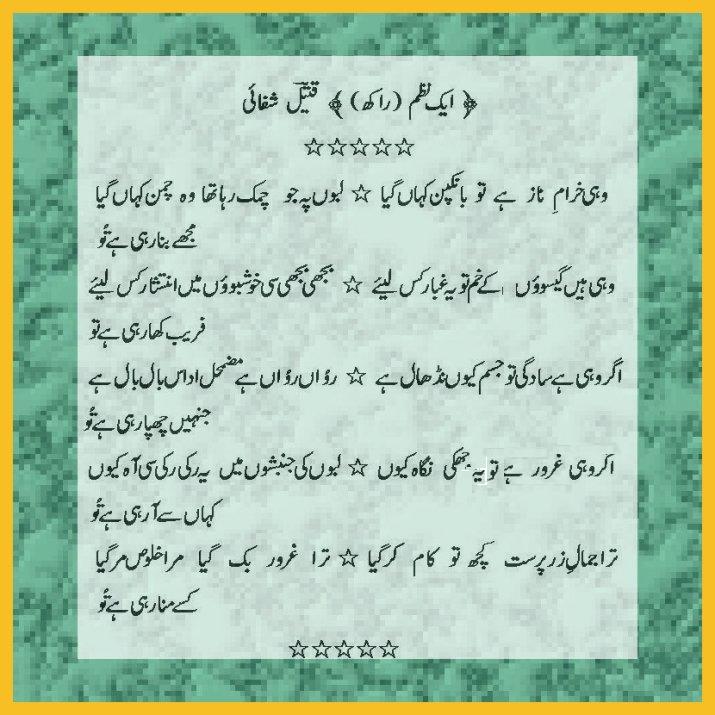 ﴿ ایک نظم (راکھ) ﴾ قتیلؔ شفائی
☆☆☆☆☆
وہی خرامِ ناز ہے تو بانکپن کہاں گیا ☆ لبوں پہ جو چمک رہا تھا وہ چمن کہاں گیا
مجھے بنا رہی ہے تُو
وہی ہیں گیسوؤں کے خم تو یہ غبار کس لیئے ☆ بجھی بجھی سی خوشبوؤں میں انتشار کس لیئے
فریب کھا رہی ہے تو
اگر وہی ہے سادگی تو جسم کیوں نڈھال ہے ☆ رؤاں رؤاں ہے مضمحل اداس بال بال ہے
جنہیں چھپا رہی ہے تُو
اگر وہی غرور ہے تو یہ جھکی نگاہ کیوں ☆ لبوں کی جنبشوں میں یہ رکی رکی سی آہ کیوں
کہاں سے آ رہی ہے تُو
ترا جمالِ زر پرست کچھ تو کام کر گیا ☆ ترا غرور بک گیا مرا خلوص مر گیا
کسے منا رہی ہے تُو
☆☆☆☆☆